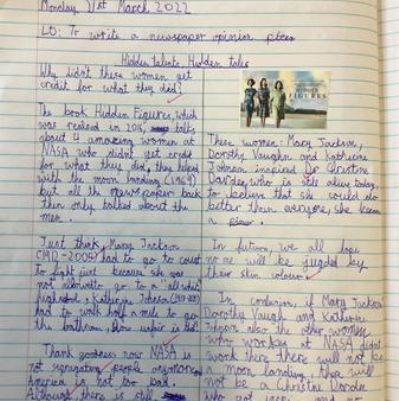 Monday 21st March 2022
LO: To write a newspaper opinion piece
Hidden talents Hidden tales
Why didn't these women get
credit for what they did?
The book Hidden Figures, which
was realesed in 2016 talks
about 4 amazing women at
NASA who didn't get credit
for what they did, they helped
with the moon landing (1969)
but all the newspaper back
then only talked about the
men.
Just think, Mary Jackson
(1921-2005) had to go to court
to fight just because she was
not allowed to go to a "all white
highschool, Katherine Johnson
had to walk half a mile to go
the bathroom, how unfair is that
Thank goodness now NASA is
not segregating people anymore
America is not too bad.
Although there is still
HIDDEN
FIGURES
These women: Mary Jackson,
Dorothy Vaughn and Katherine
Johnson inspired Dr Christine
Darden, who is still alive today,
to believe that she could do
better than everyone, she been
a
In future, we all hope
no one will be judged by
their skin colour.
In conlusion, if Mary Jackson
Dorothy Vaugh and Katherine
Johnson also the other women
who worked at NASA didn't
work there there will not be
a moon landing, there will
not be a Christine Darden
who got